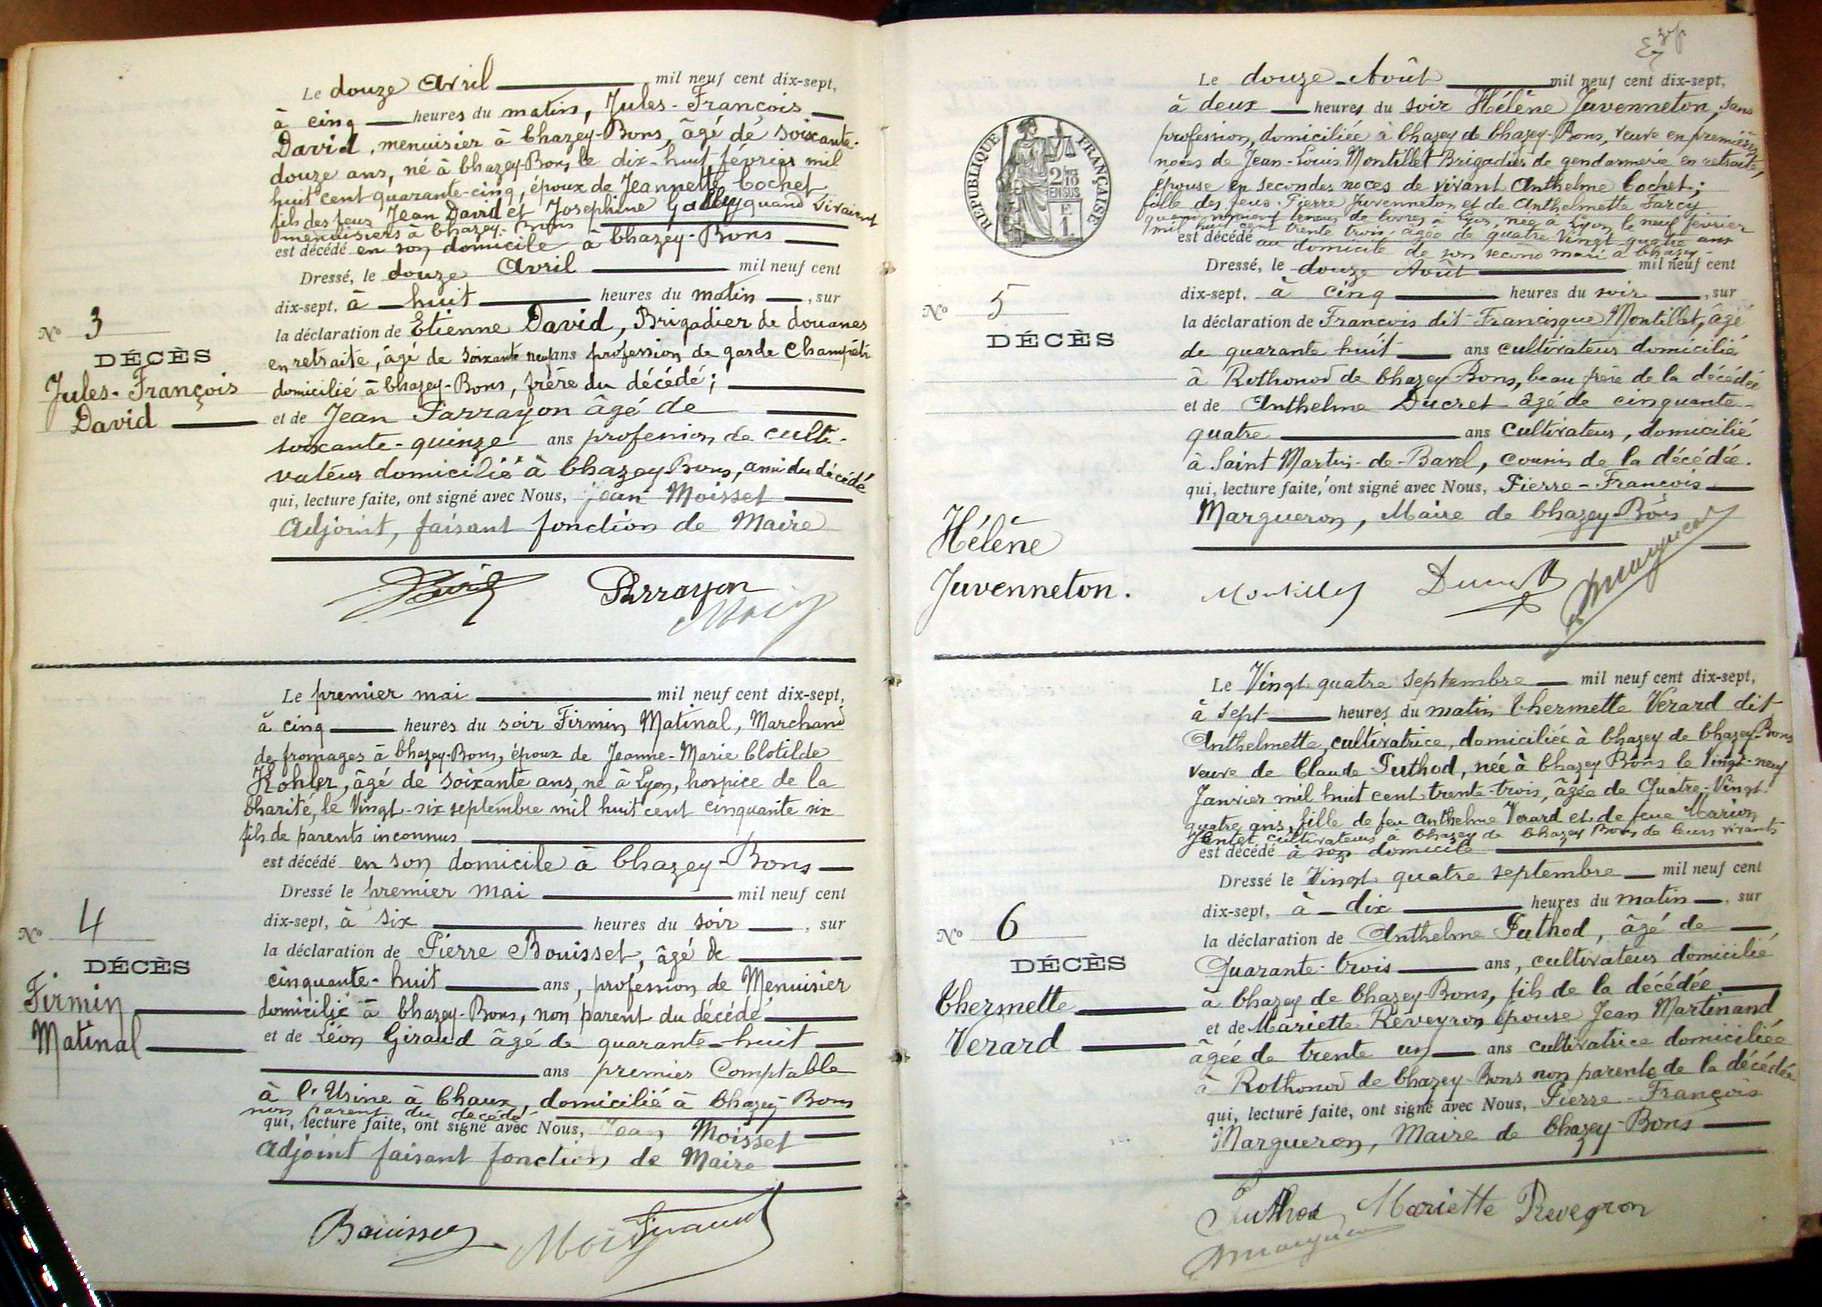 Le douze Avril mil neuf cent dix-sept,
à cinq heures du matin, Jules-François
David, menuisier à Chazey-Bons, âgé de soixante-
douze ans, né à Chazey-Bons, le dix-huit février mil
huit cent quarante-cinq, époux de Jeannette Cochet,
fils des feus Jean David et Josephine Golley quand vivaient
menuisiers à Chazey-Bons
est décédé en son domicile à Chazey-Bons
Dressé, le douze Avril mil neuf cent
dix-sept, à huit heures du matin, sur
No 3
la déclaration de Etienne David, Brigadier de douanes
DÉCÈS
en retraite, âgé de soixante neuf ans profession de garde Champêtre
Jules-François
domicilié à Chazey-Bons, frère du décédé;
David
et de Jean Parrayon âgé de
soixante-quinze ans profession de culti-
vateur domicilié à Chazey-Bons, ami du décédé
qui, lecture faite, ont signé avec Nous, Jean Moisset
Adjoint, faisant fonction de Maire
David Parrayon
Le premier mai mil neuf cent dix-sept,
à cinq heures du soir Firmin Matinal, Marchand
de fromages à Chazey-Bons, époux de Jeanne-Marie Clotilde
Kohler, âgé de soixante ans, né à Lyon, hospice de la
Charité, le Vingt-six septembre mil huit cent cinquante six
fils de parents inconnus
est décédé en son domicile à Chazey-Bons
Dressé le premier mai mil neuf cent
No 4
dix-sept, à six heures du soir, sur
la déclaration de Pierre Bouisset, âgé de
DÉCÈS
cinquante-huit ans, profession de Menuisier
Firmin
domicilié à Chazey-Bons, non parent du décédé
Matinal
et de Léon Giraud âgé de quarante-huit
ans premier Comptable
à l'Usine à Chaux, domicilié à Chazey-Bons
non parent du décédé
qui, lecture faite, ont signé avec Nous, Jean Moisset
Adjoint faisant fonction de Maire
Bouisset Giraud
Le douze Août mil neuf cent dix-sept,
à deux heures du soir Hélène Juvenneton, sans
profession, domiciliée à Chazey de Chazey-Bons, veuve en premières
noces de Jean-Louis Montillet Brigadier de gendarmerie en retraite,
épouse en secondes noces de vivant Anthelme Cochet;
fille des feus Pierre Juvenneton et de Anthelmette Sarcy
teneur de livres à Lyon, née à Lyon le neuf février
mil huit cent trente trois, âgée de quatre Vingt quatre ans
est décédé au domicile de son second mari à Chazey-
RÉPUBLIQUE FRANÇAISE
2/10
EN SUS
F
1
Dressé, le douze Août mil neuf cent
dix-sept, à cinq heures du soir, sur
No 5
la déclaration de François dit Francisque Montillet, âgé
DÉCÈS
de quarante huit ans cultivateur domicilié
à Rothonod de Chazey-Bons, beau frère de la décédée
et de Anthelme Ducret âgé de cinquante-
quatre ans cultivateur, domicilié
à Saint Martin-de-Bavel, cousin de la décédée.
qui, lecture faite, ont signé avec Nous, Pierre-François
Margueron, Maire de Chazey-Bons
Hélène
Juvenneton.
Montillet Ducret Margueron
Le Vingt quatre septembre mil neuf cent dix-sept,
à sept heures du matin Chermette Verard dit
Anthelmette, cultivatrice, domiciliée à Chazey de Chazey-Bons
veuve de Claude Puthod, née à Chazey Bons le Vingt-neuf
Janvier mil huit cent trente-trois, âgée de Quatre-Vingt
quatre ans, fille de feu Anthelme Verard et de feue Marion
Jantet cultivateurs à Chazey de Chazey Bons de leurs vivants
est décédé à son domicile
Dressé le Vingt quatre septembre mil neuf cent
dix-sept, à dix heures du matin, sur
No 6
la déclaration de Anthelme Puthod, âgé de
DÉCÈS
Quarante-trois ans, cultivateur domicilié
Chermette
à Chazey de Chazey-Bons, fils de la décédée
Verard
et de Mariette Reveyron épouse Jean Martinand
âgée de trente un ans cultivatrice domiciliée
à Rothonod de Chazey-Bons non parente de la décédée
qui, lecture faite, ont signé avec Nous, Pierre-François
Margueron, Maire de Chazey-Bons
Puthod Mariette Reveyron
Margueron